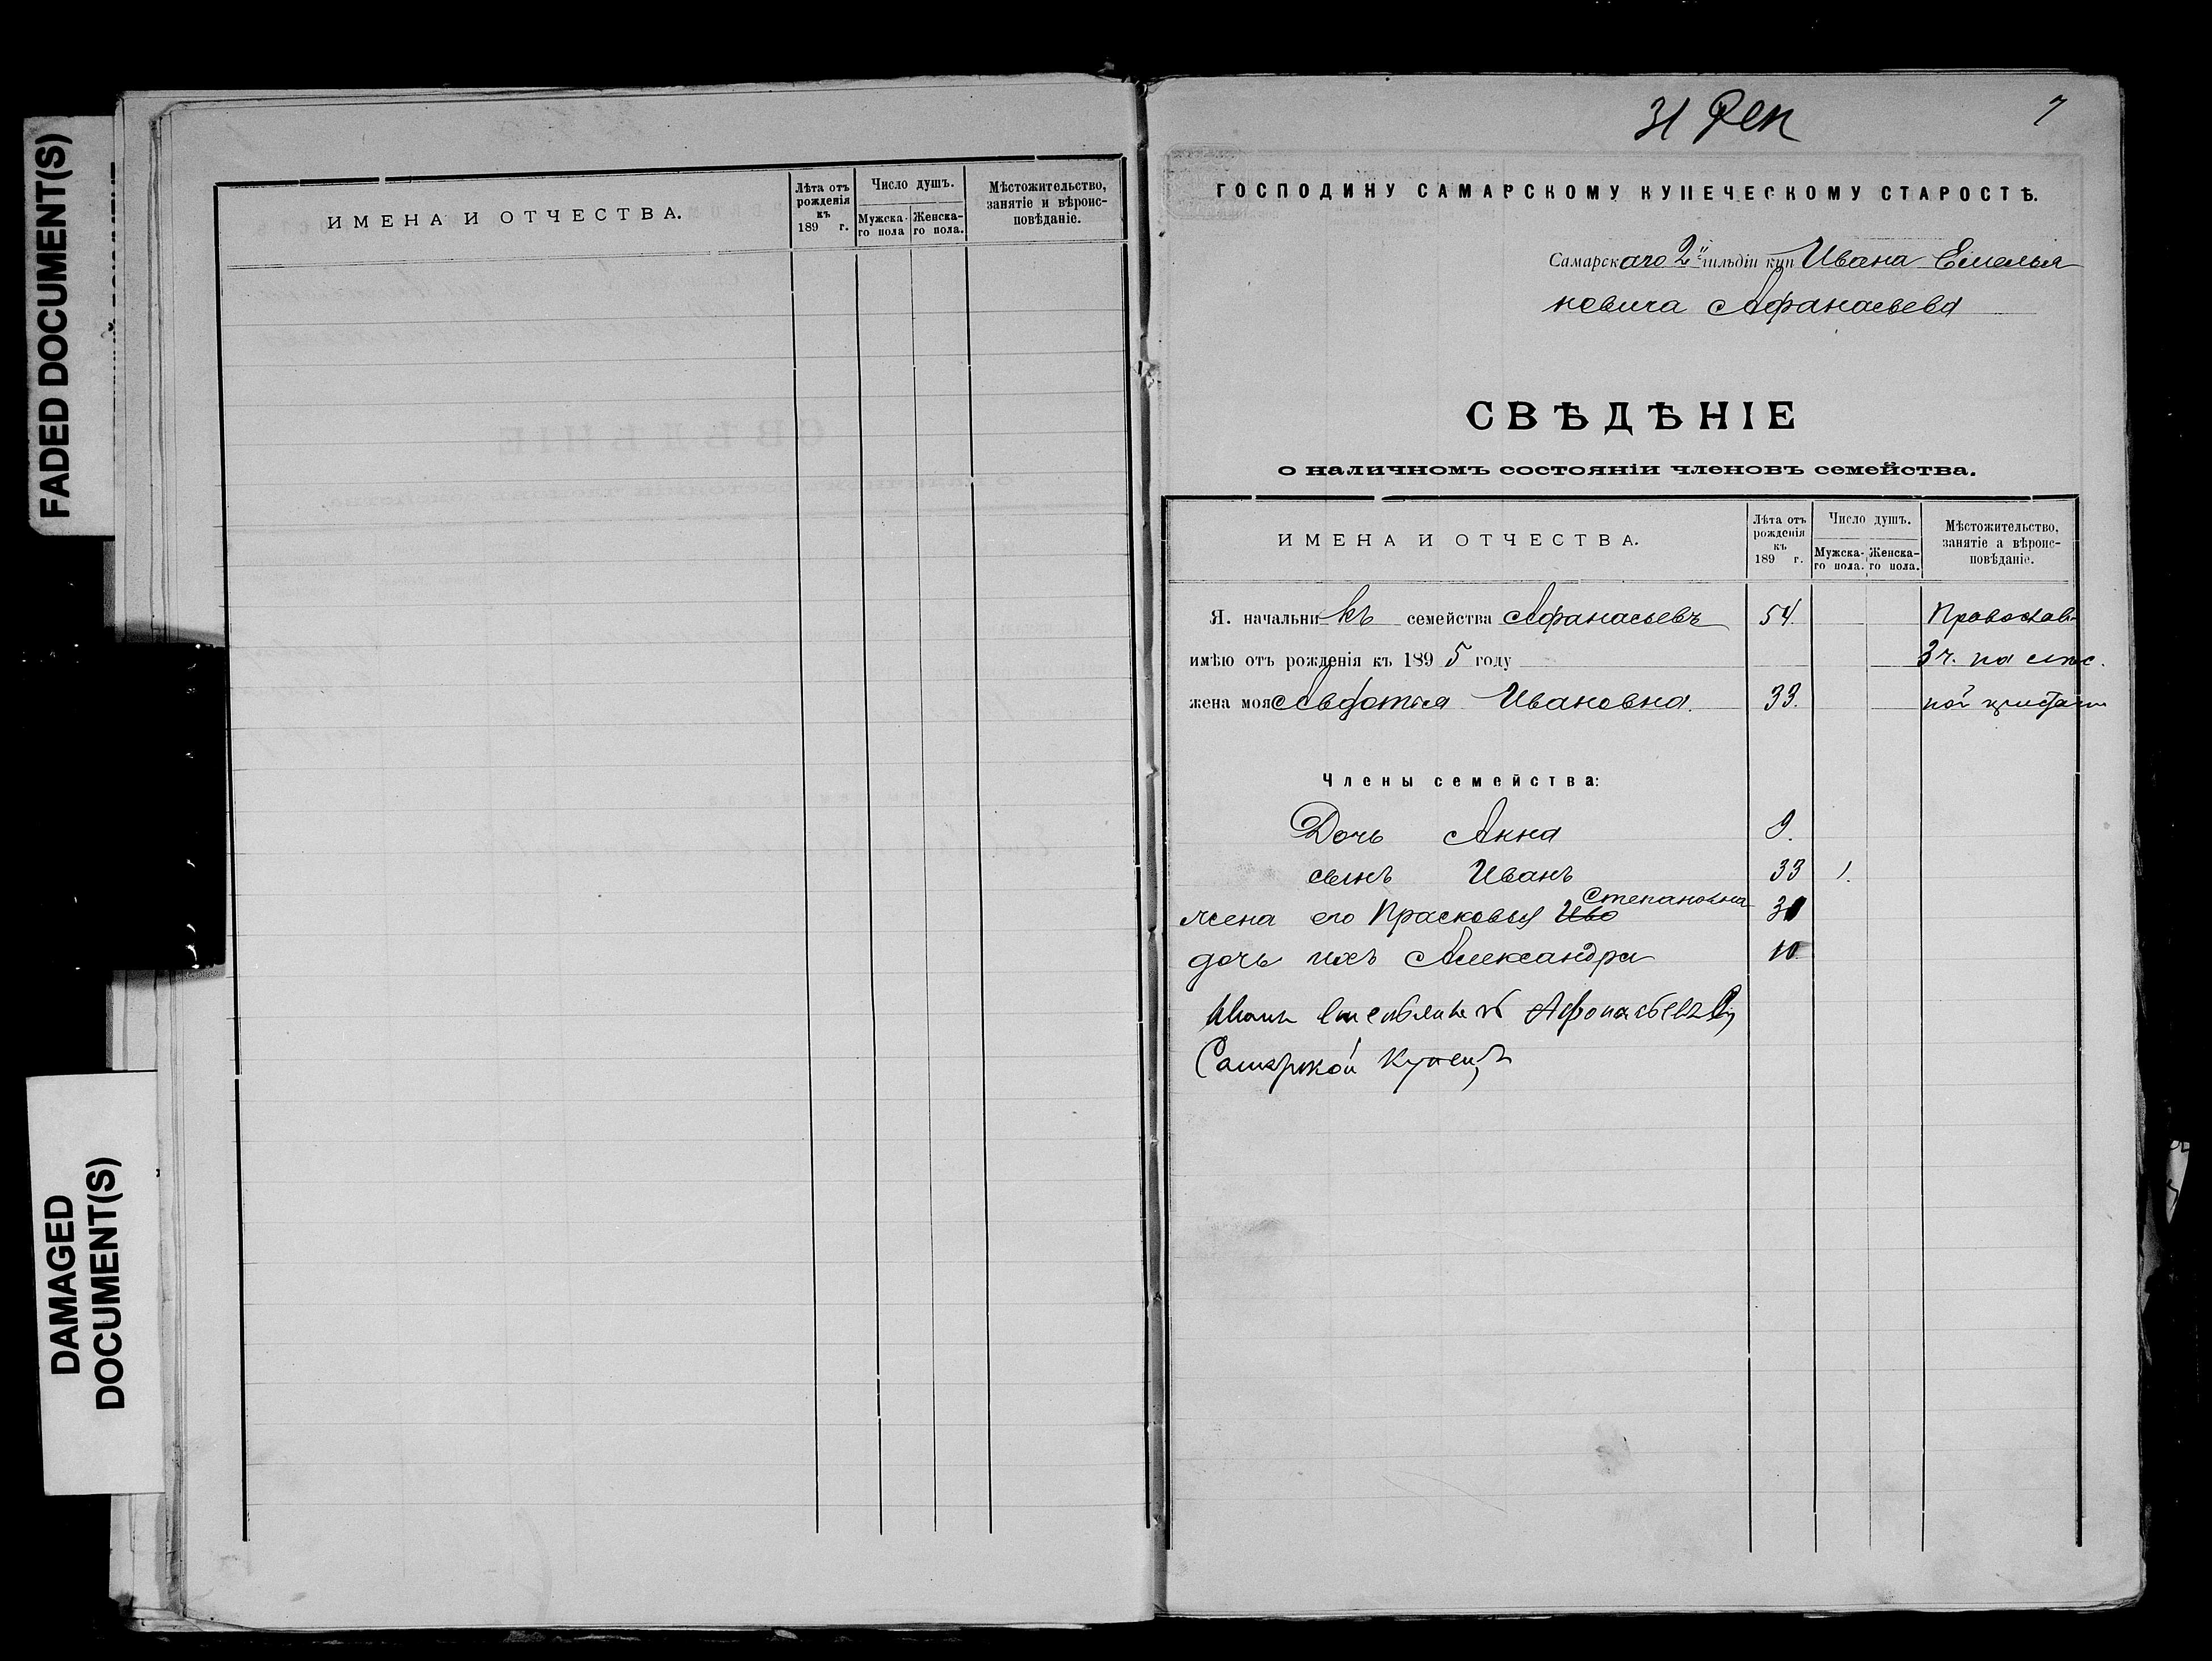 FADED DOCUMENT(S)
DAMAGED
DOCUMENT(S)
ИМЕНА И ОТЧЕСТВА.
Лѣта отъ
рожденія
къ
189 г.
Число душъ.
Мужска-
го пола
Женска-
го пола.
Мѣстожительство,
занятіе и вѣроис-
повѣданіе.
31 Дек
7
ГОСПОДИНУ САМАРСКОМУ КУПЕЧЕСКОМУ СТАРОСТѢ.
Самарскаго 2й гильдіи куп Ивана Емелья
новича Афанасьева
СВѢДѢНІЕ
о наличномъ состояніи членовъ семейства.
ИМЕНА И ОТЧЕСТВА.
Лѣта отъ
рожденія
къ
189 г.
Число душъ.
Мужска-
го пола.
Женска-
го пола.
Мѣстожительство,
занятіе а вѣроис-
повѣданіе.
Я. начальникъ семейства Афанасьевъ 54. Православ
имѣю отъ рожденія къ 1895 году 3 ч. на
жена моя Авдотья Ивановна. 33.
Члены семейства:
Дочь Анна 9.
сынъ Иванъ 33 1.
Степановна
жена его Прасковья Ива 31
дочь ихъ Александра 10
Иванъ Афонасьевъ
Самарской Купецъ